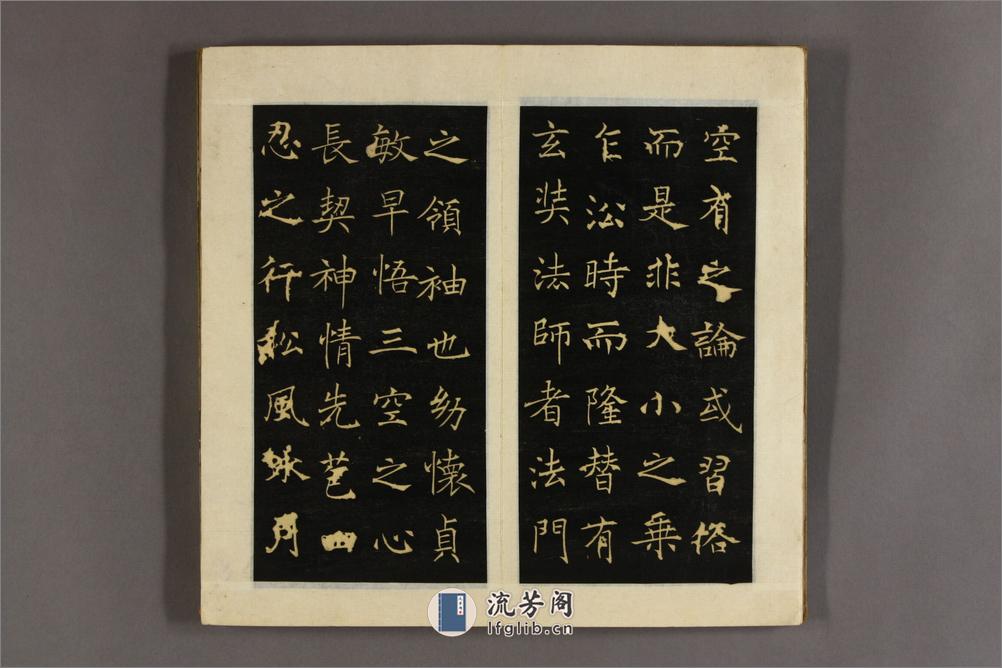 空有之論或習俗
而是非大小之乗
乍㳂時而隆替有
玄奘法師者法門
之領袖也幼懷貞
敏早悟三空之心
長契神情先苞四
忍之行松風月
流芳阁
lfglib.cn